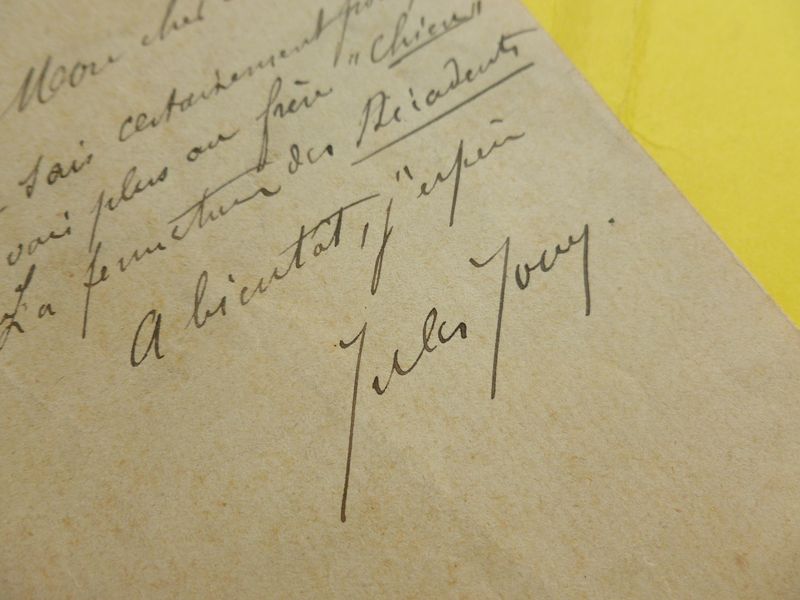 Mon cher
sais certainement pour
vais plus au frère "Chien"
La fermeture des Décadents
A bientôt, j'espère
Jules Jouy.